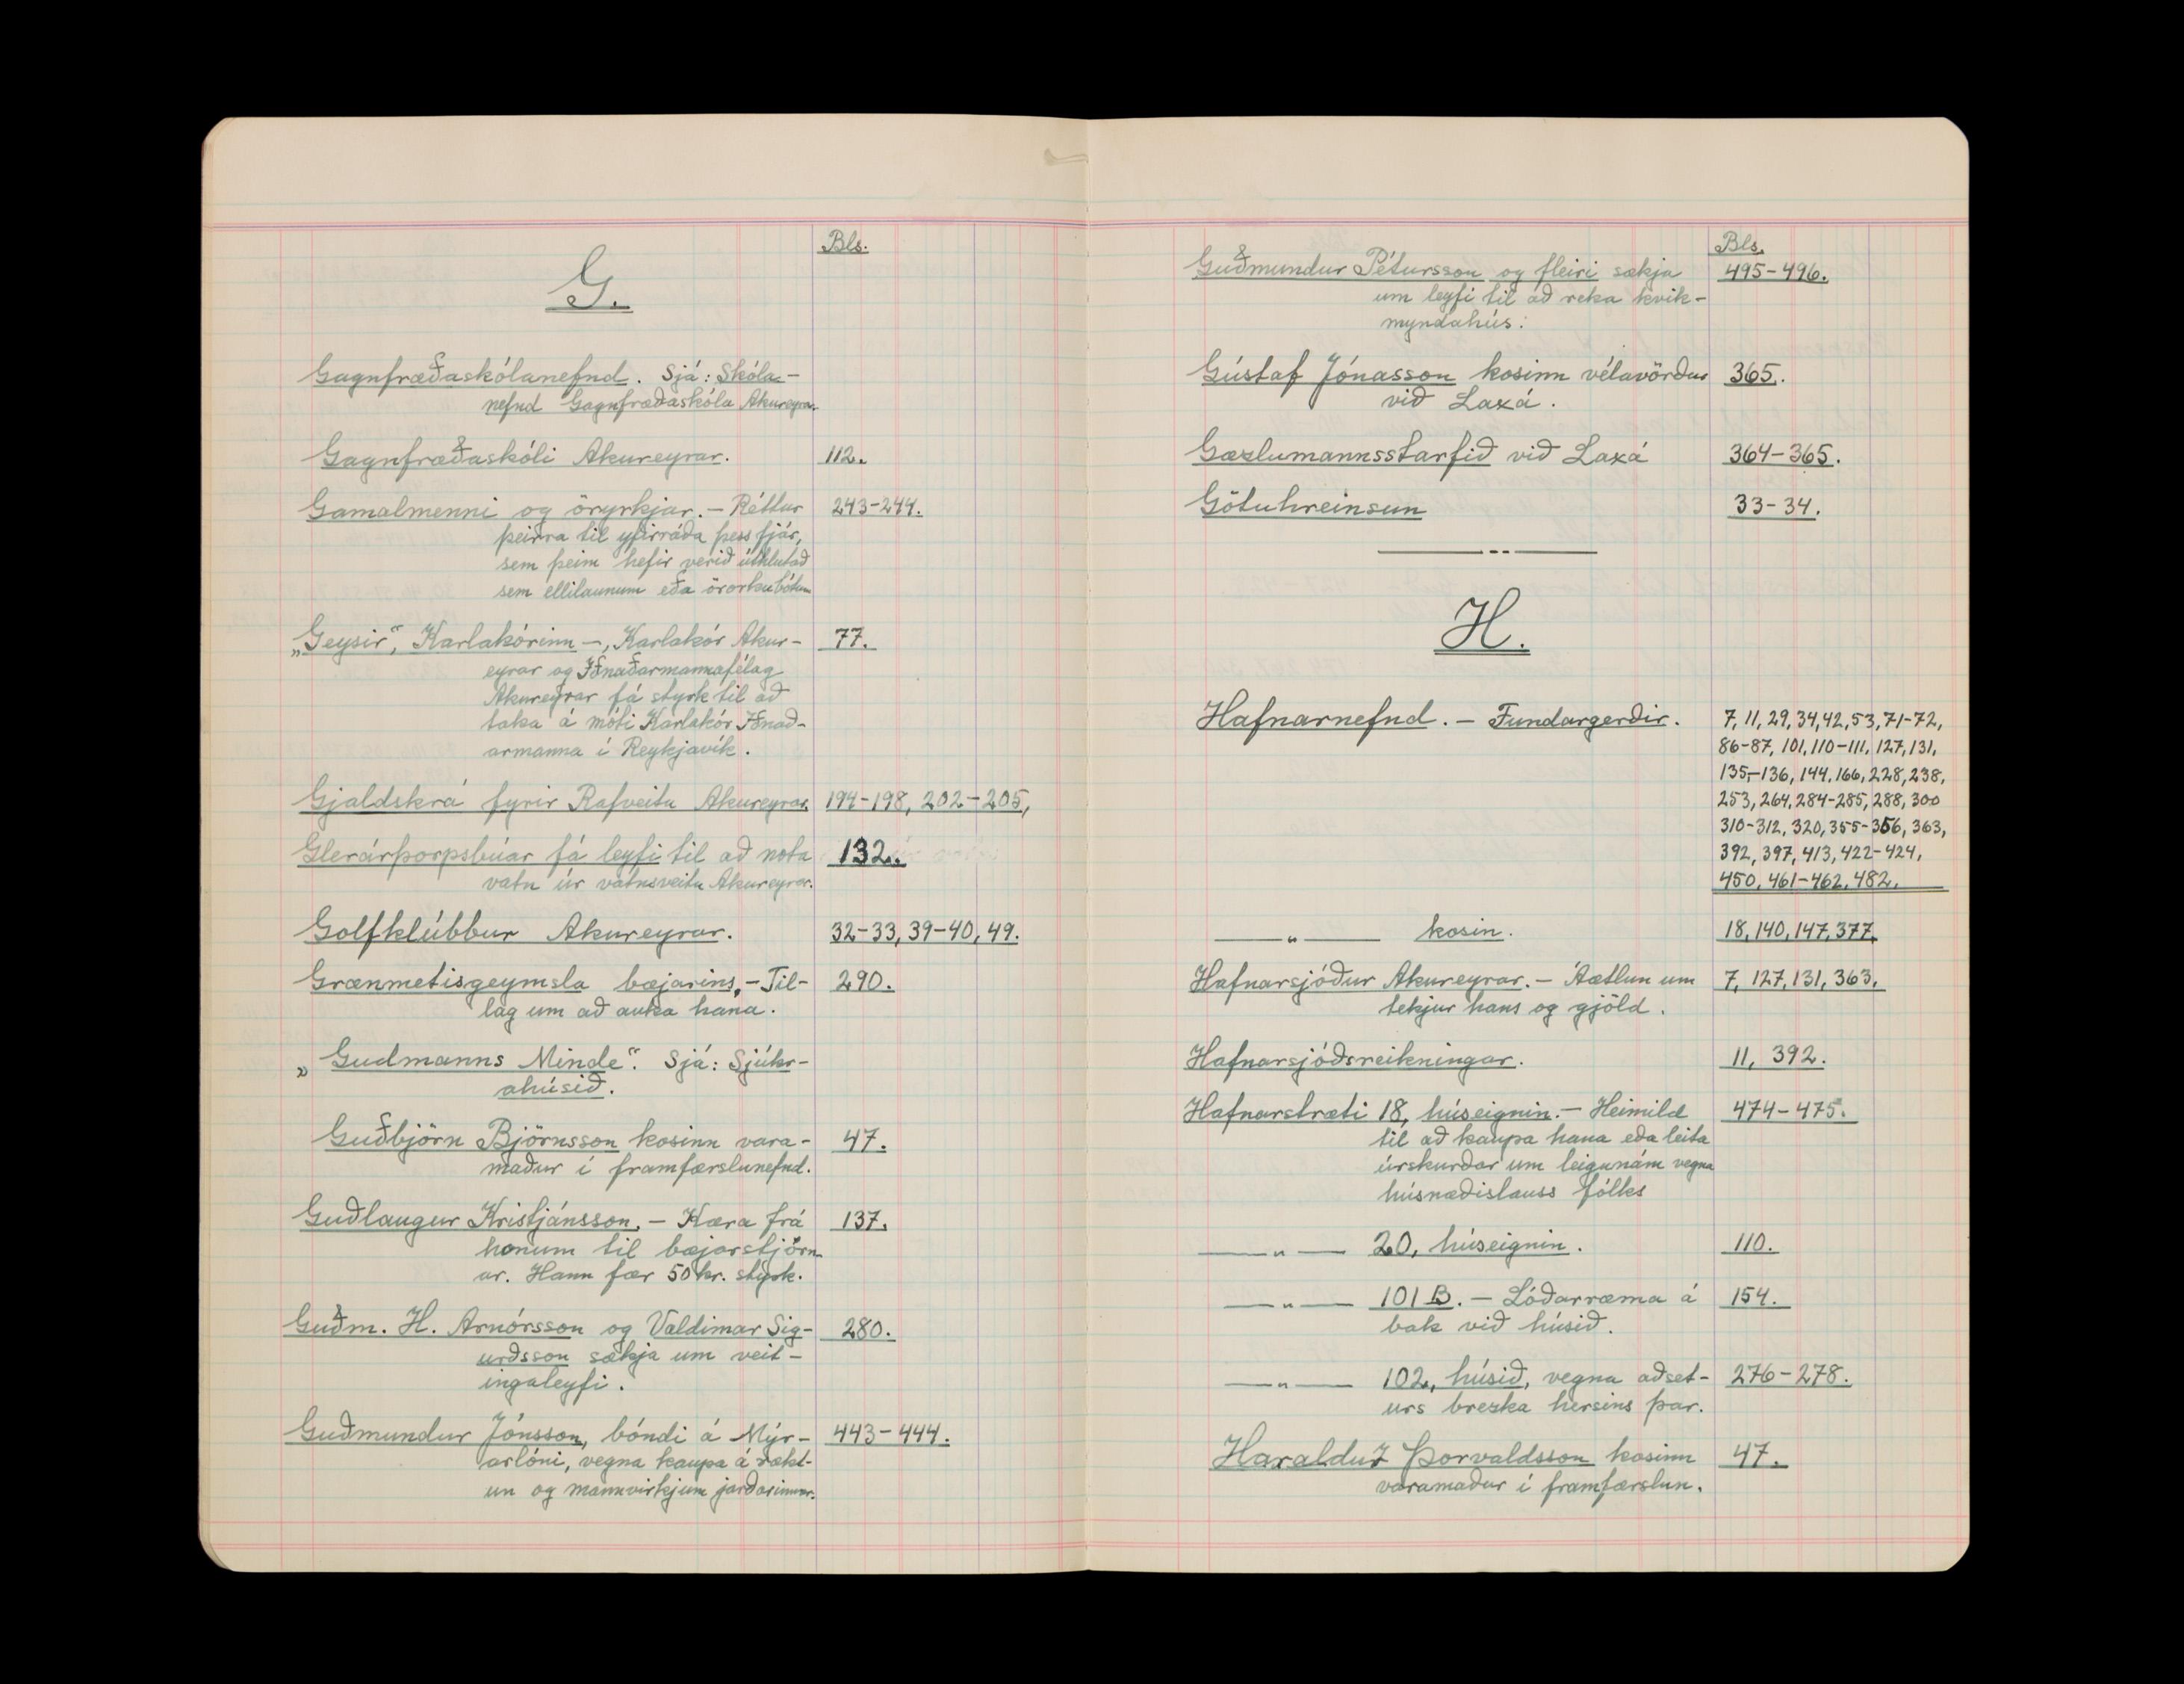 Bls.
G.
Gagnfræðaskólanefnd. Sjá: Skóla-
nefnd Gagnfræðaskóla Akureyrar.
Gagnfræðaskóli Akureyrar. 112.
Gamalmenni og öryrkjar. - Réttur 243-244.
þeirra til yfirráða þess fjár,
sem þeim hefir verið úthlutað
sem ellilaunum eða örorkubótum
„Geysir“, Karlakórinn -, Karlakór Akur- 77.
eyrar og Iðnaðarmannafélag
Akureyrar fá styrk til að
taka á móti Karlakór Iðnað-
armanna í Reykjavík.
Gjaldskrá fyrir Rafveitu Akureyrar. 194-198, 202-205,
Glerárþorpsbúar fá leyfi til að nota 132.
vatn úr vatnsveitu Akureyrar.
Golfklúbbur Akureyrar. 32-33, 39-40, 49.
Grænmetisgeymsla bæjarins. - Til- 290.
lag um að auka hana.
„Gudmanns Minde“. Sjá: Sjúkr-
ahúsið.
Guðbjörn Björnsson kosinn vara- 47.
maður í framfærslunefnd.
Guðlaugur Kristjánsson. - Kæra frá 137.
honum til bæjarstjórn-
ar. Hann fær 50 kr. styrk.
Guðm. H. Arnórsson og Valdimar Sig- 280.
urðsson sækja um veit-
ingaleyfi.
Guðmundur Jónsson, bóndi á Mýr- 443-444.
arlóni, vegna kaupa á rækt-
un og mannvirkjum jarðarinnar.
Bls.
Guðmundur Pétursson og fleiri sækja 495-496.
um leyfi til að reka kvik-
myndahús.
Gústaf Jónasson kosinn vélavörður 365.
við Laxá.
Gæzlumannsstarfið við Laxá 364-365.
Götuhreinsun 33-34.
H.
Hafnarnefnd. - Fundargerðir. 7, 11, 29, 34, 42, 53, 71-72,
86-87, 101, 110-111, 127, 131,
135-136, 144, 166, 228, 238,
253, 264, 284-285, 288, 300
310-312, 320, 355-356, 363,
392, 397, 413, 422-424,
450, 461-462, 482.
—„— kosin. 18, 140, 147, 377.
Hafnarsjóður Akureyrar. - Áætlun um 7, 127, 131, 363.
tekjur hans og gjöld.
Hafnarsjóðsreikningar. 11, 392.
Hafnarstræti 18, húseignin. - Heimild 474-475.
til að kaupa hana eða leita
úrskurðar um leigunám vegna
húsnæðislauss fólks
—„— 20, húseignin. 110.
—„— 101 B. - Lóðarræma á 154.
bak við húsið.
—„— 102, húsið, vegna aðset- 276-278.
urs brezka hersins þar.
Haraldur Þorvaldsson kosinn 47.
varamaður í framfærslun.